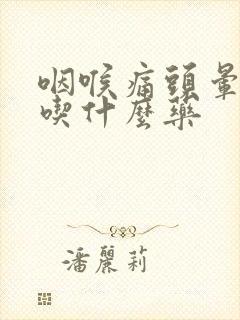 咽喉痛頭暈
喫什麼藥
潘麗莉